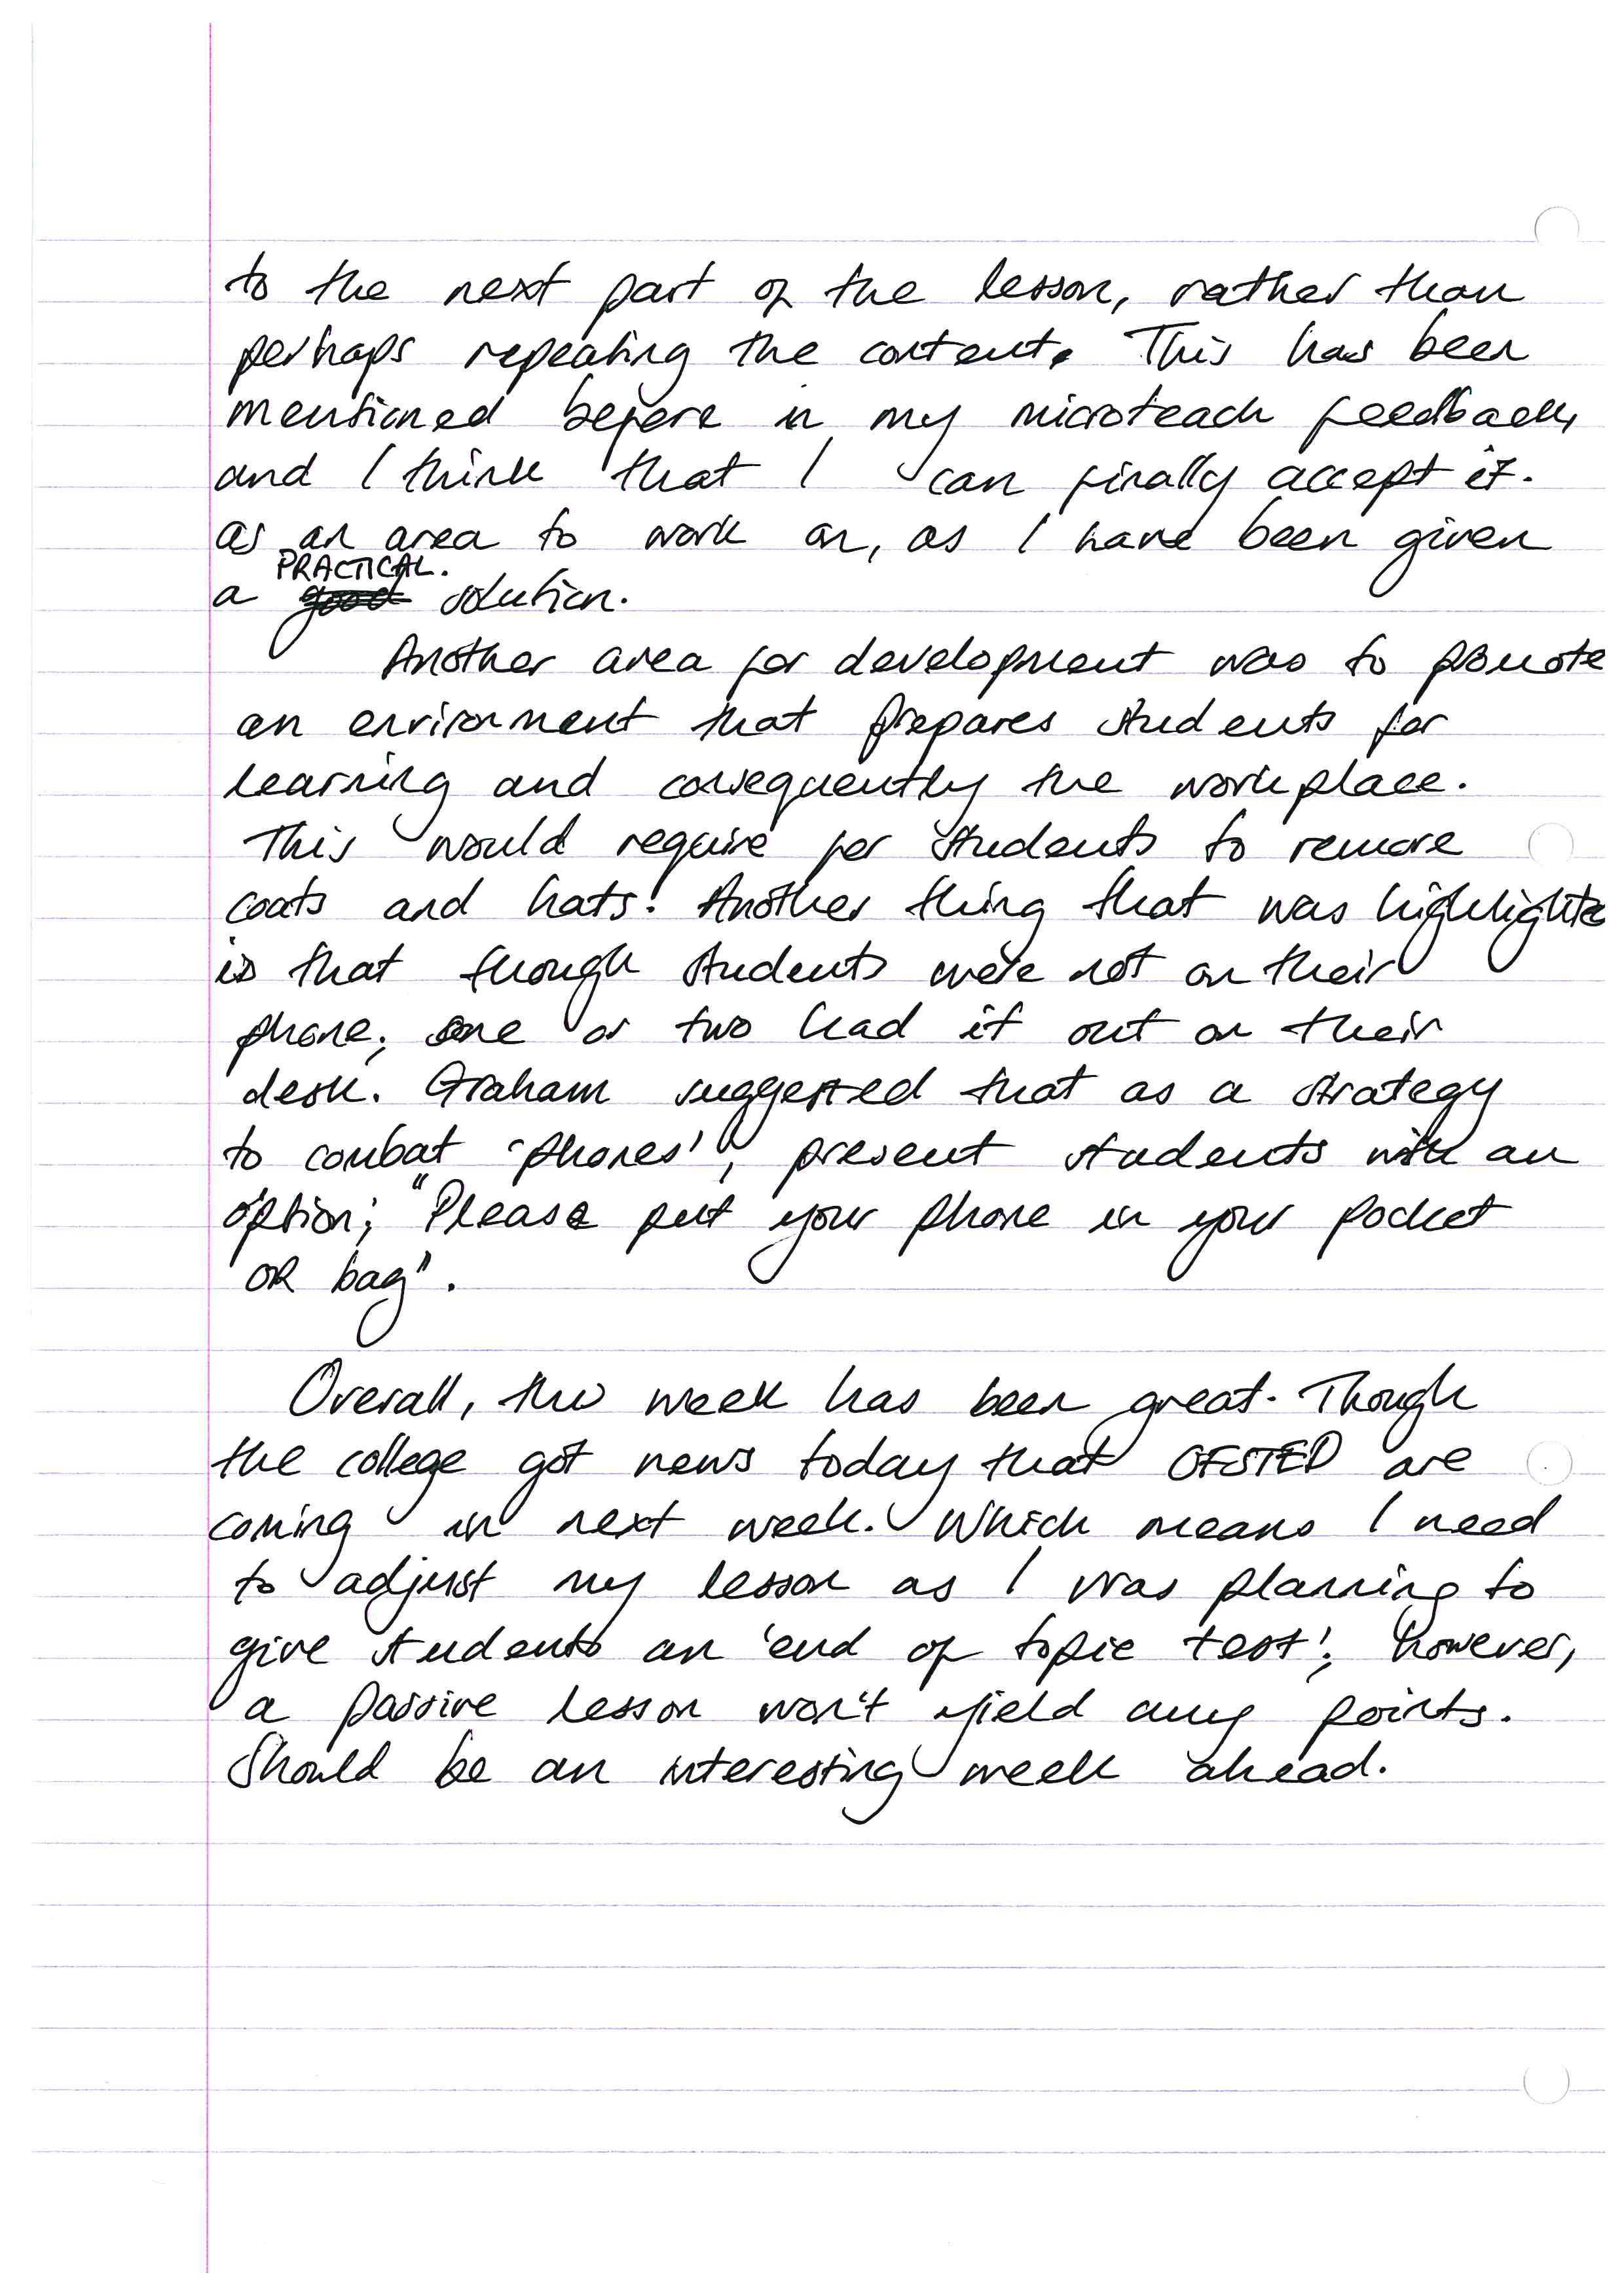 to the next part of the lesson, rather than
perhaps repeating the content. This has been
mentioned before in my microteach feedback,
and I think that I can finally accept it.
as an area to work on, as I have been given
PRACTICAL.
a good solution.
Another area for development was to promote
an enviroment that prepares students for
learning and consequently the workplace.
This would require for students to remove
coats and hats. Another thing that was highlighte
is that though students were not on their
phone; one or two had it out on their
desk. Graham suggested that as a strategy
to combat 'phones', present students with an
option; "Please put your phone in your pocket
OR bag".
Overall, this week has been great. Though
the college got news today that OFSTED are
coming in next week. Which means I need
to adjust my lesson as I was planning to
give students an 'end of topic test'; however,
a passive lesson won't yield any points.
Should be an interesting week ahead.